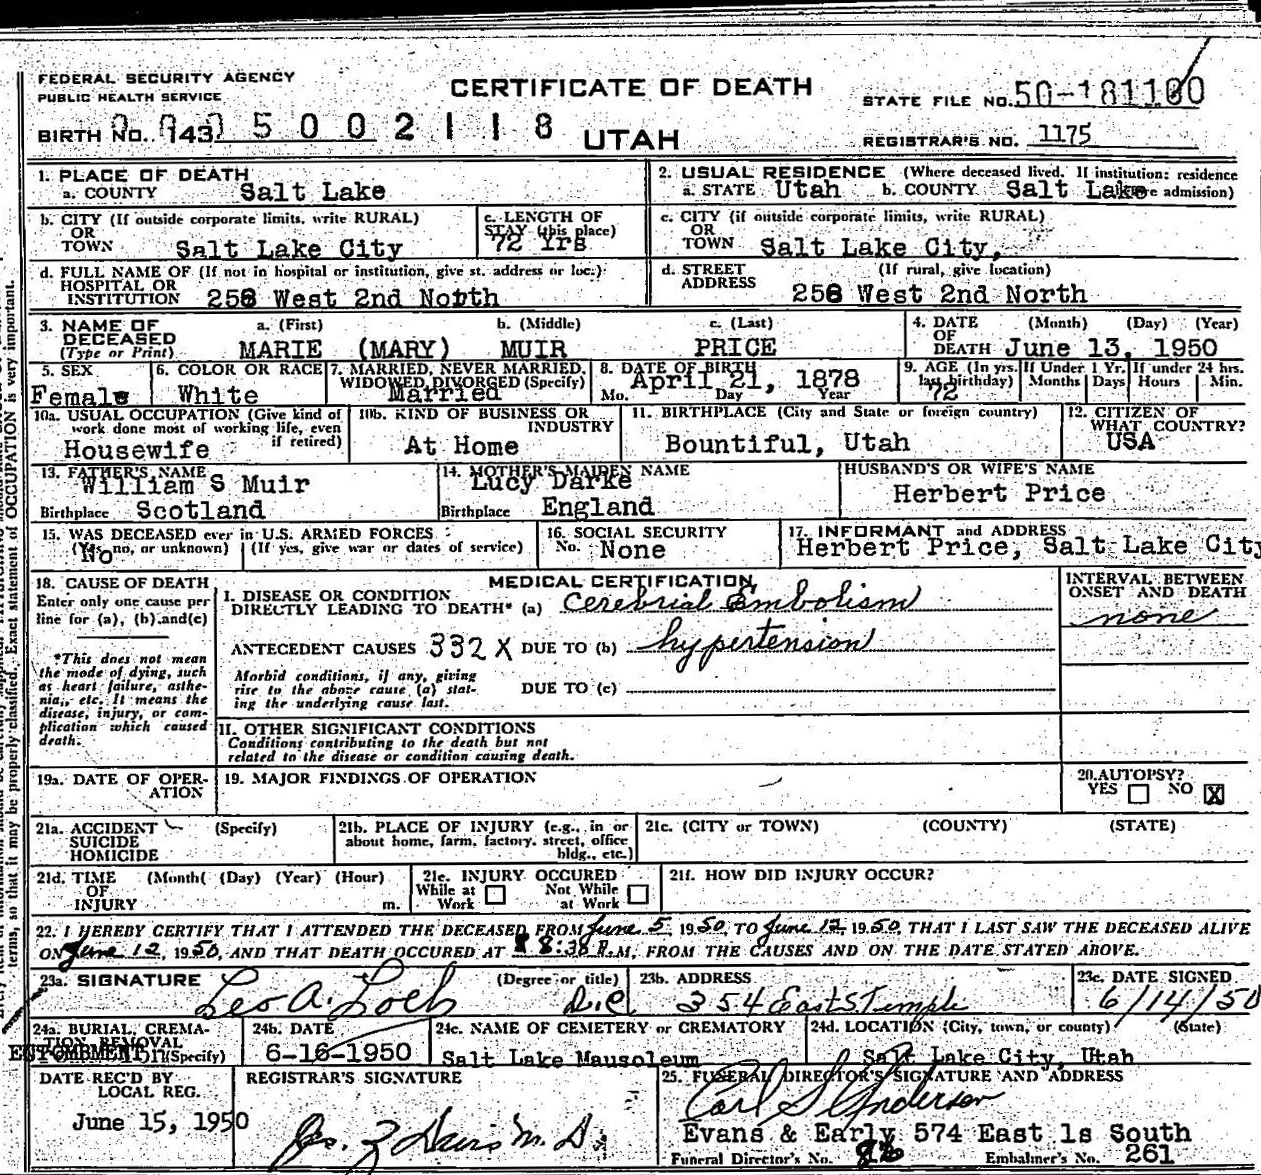 FEDERAL SECURITY AGENCY
PUBLIC HEALTH SERVICE
CERTIFICATE OF DEATH
STATE FILE NO. 50-181100
BIRTH NO. 143 5 0 0 2 1 1 8
UTAH
REGISTRAR'S NO. 1175
1. PLACE OF DEATH
a. COUNTY Salt Lake
2. USUAL RESIDENCE (Where deceased lived. If institution: residence
a. STATE Utah b. COUNTY Salt Lake admission)
b. CITY (If outside corporate limits, write RURAL)
OR
TOWN Salt Lake City
c. LENGTH OF
STAY (this place)
72 Yrs
c. CITY (if outside corporate limits, write RURAL)
OR
TOWN Salt Lake City,
d. FULL NAME OF (If not in hospital or institution, give st. address or loc.)
HOSPITAL OR
INSTITUTION 258 West 2nd North
d. STREET (If rural, give location)
ADDRESS 258 West 2nd North
3. NAME OF DECEASED
(Type or Print)
a. (First) b. (Middle) c. (Last)
MARIE (MARY) MUIR PRICE
4. DATE (Month) (Day) (Year)
OF
DEATH June 13, 1950
5. SEX
Female
6. COLOR OR RACE
White
7. MARRIED, NEVER MARRIED,
WIDOWED, DIVORCED (Specify)
Married
8. DATE OF BIRTH
April 21, 1878
Mo. Day Year
9. AGE (In yrs. last birthday)
72
If Under 1 Yr.
Months Days
If under 24 hrs.
Hours Min.
10a. USUAL OCCUPATION (Give kind of
work done most of working life, even
if retired)
Housewife
10b. KIND OF BUSINESS OR
INDUSTRY
At Home
11. BIRTHPLACE (City and State or foreign country)
Bountiful, Utah
12. CITIZEN OF
WHAT COUNTRY?
USA
13. FATHER'S NAME
William S Muir
Birthplace Scotland
14. MOTHER'S MAIDEN NAME
Lucy Darke
Birthplace England
HUSBAND'S OR WIFE'S NAME
Herbert Price
15. WAS DECEASED ever in U.S. ARMED FORCES
(Yes, no, or unknown) (If yes, give war or dates of service)
No
16. SOCIAL SECURITY
No. None
17. INFORMANT and ADDRESS
Herbert Price, Salt Lake City
18. CAUSE OF DEATH
Enter only one cause per
line for (a), (b) and(c)
*This does not mean
the mode of dying, such
as heart failure, asthe-
nia, etc. It means the
disease, injury, or com-
plication which caused
death.
MEDICAL CERTIFICATION
I. DISEASE OR CONDITION
DIRECTLY LEADING TO DEATH* (a) Cerebrial Embolism
ANTECEDENT CAUSES 332 X DUE TO (b) hypertension
Morbid conditions, if any, giving
rise to the above cause (a) stat-
ing the underlying cause last.
DUE TO (c)
II. OTHER SIGNIFICANT CONDITIONS
Conditions contributing to the death but not
related to the disease or condition causing death.
INTERVAL BETWEEN
ONSET AND DEATH
none
19a. DATE OF OPER-
ATION
19. MAJOR FINDINGS OF OPERATION
20. AUTOPSY?
YES NO X
21a. ACCIDENT (Specify)
SUICIDE
HOMICIDE
21b. PLACE OF INJURY (e.g., in or
about home, farm, factory, street, office
bldg., etc.)
21c. (CITY or TOWN) (COUNTY) (STATE)
21d. TIME (Month( (Day) (Year) (Hour)
OF
INJURY m.
21e. INJURY OCCURED
While at Work Not While at Work
21f. HOW DID INJURY OCCUR?
22. I HEREBY CERTIFY THAT I ATTENDED THE DECEASED FROM June 5, 1950, TO June 12, 1950, THAT I LAST SAW THE DECEASED ALIVE
ON June 12, 1950, AND THAT DEATH OCCURED AT 8:38 P.M, FROM THE CAUSES AND ON THE DATE STATED ABOVE.
23a. SIGNATURE (Degree or title)
Leo A. Loeb D.C
23b. ADDRESS
354 East S. Temple
23c. DATE SIGNED
6/14/50
24a. BURIAL, CREMA-
TION REMOVAL
ENTOMBMENT (Specify)
24b. DATE
6-16-1950
24c. NAME OF CEMETERY or CREMATORY
Salt Lake Mausoleum
24d. LOCATION (City, town, or county) (State)
Salt Lake City, Utah
DATE REC'D BY
LOCAL REG.
June 15, 1950
REGISTRAR'S SIGNATURE
Jos. Z Davis M.D.
25. FUNERAL DIRECTOR'S SIGNATURE AND ADDRESS
Carl S Anderson
Evans & Early 574 East 1s South
Funeral Director's No. Embalmer's No. 261
terms, so that it may be properly classified. Exact statement of OCCUPATION is very important.